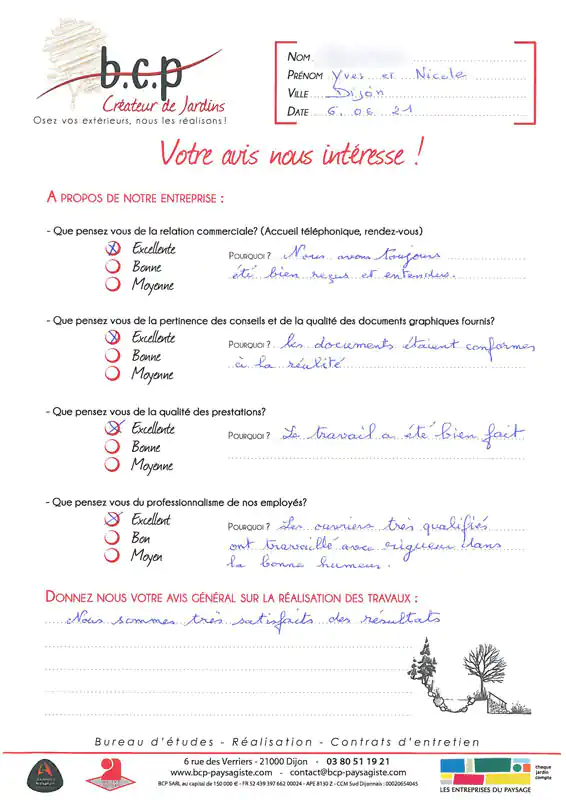 b.c.p
Créateur de Jardins
Osez vos extérieurs, nous les réalisons!
NOM
PRÉNOM Yves et Nicole
VILLE Dijon
DATE 6.06.21
Votre avis nous intéresse !
A PROPOS DE NOTRE ENTREPRISE :
- Que pensez vous de la relation commerciale? (Accueil téléphonique, rendez-vous)
Excellente
Bonne
Moyenne
POURQUOI ? Nous avons toujours
été bien reçus et entendus.
- Que pensez vous de la pertinence des conseils et de la qualité des documents graphiques fournis?
Excellente
Bonne
Moyenne
POURQUOI ? les documents étaient conformes
à la réalité
- Que pensez vous de la qualité des prestations?
Excellente
Bonne
Moyenne
POURQUOI ? Le travail a été bien fait
- Que pensez vous du professionnalisme de nos employés?
Excellent
Bon
Moyen
POURQUOI ? Les ouvriers très qualifiés
ont travaillé avec rigueur dans
la bonne humeur.
DONNEZ NOUS VOTRE AVIS GÉNÉRAL SUR LA RÉALISATION DES TRAVAUX :
Nous sommes très satisfaits des résultats
Bureau d'études - Réalisation - Contrats d'entretien
6 rue des Verriers - 21000 Dijon - 03 80 51 19 21
www.bcp-paysagiste.com - contact@bcp-paysagiste.com
BCP SARL au capital de 150 000 € - FR 52 439 397 662 00024 - APE 8130 Z - CCM Sud Dijonnais : 00020654045
LES ENTREPRISES DU PAYSAGE
chaque
jardin
compte